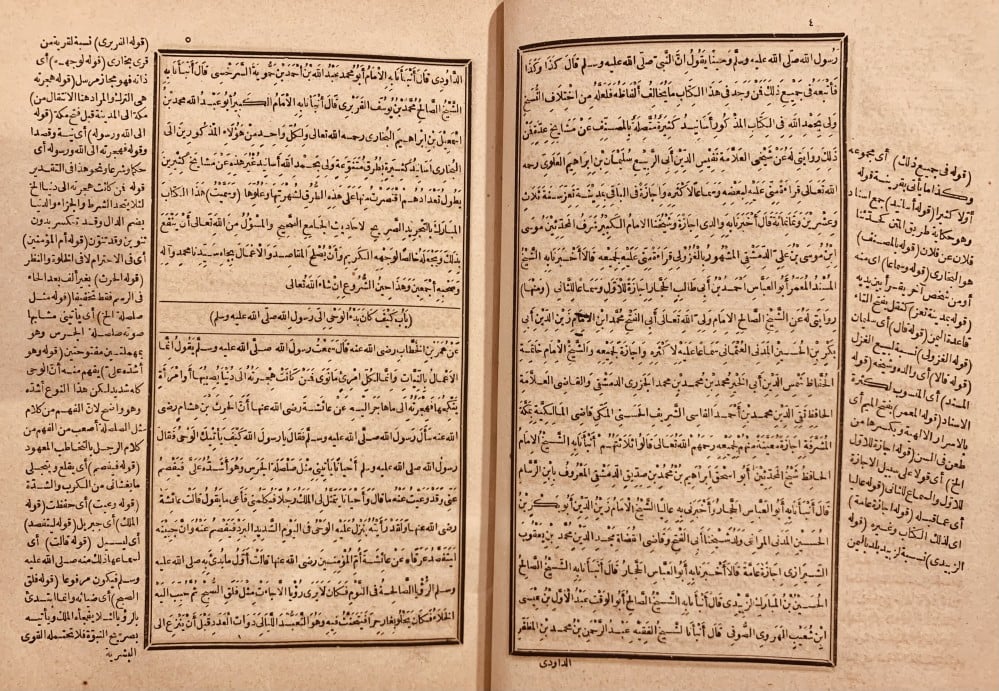 ٤
رسول الله صلى الله عليه وسلم وحينا يقول ان النبي صلى الله عليه وسلم قال كذا وكذا
فأتبعه في جميع ذلك فمن وجد في هذا الكتاب ما يخالف ألفاظه فلعله من اختلاف النسخ
ولى بحمد الله في الكتاب المذكور أسانيد كثيرة متصلة بالمصنف عن مشايخ عدة فمن
ذلك روايتي له عن شيخي العلامة نفيس الدين أبي الربيع سليمان بن ابراهيم العلوي رحمه
الله تعالى قراءة مني عليه لبعضه وسماعا لأكثره واجازة في الباقي بمدينة تعز سنة ثلاث
وعشرين وثمانمائة قال أخبرنا به والدي اجازة وشيخنا الامام الكبير شرف المحدثين موسى
ابن موسى بن على الدمشقي المشهور بالغزولى قراءة مني عليه لجميعه قالا أخبرنا به الشيخ
المسند المعمر أبو العباس احمد بن أبي طالب الحجار اجازة للأول وسماعا للثاني (ومنها)
روايتي له عن الشيخ الصالح الامام ولى الله تعالى أبي الفتح محمد ابن الامام زين الدين أبي
بكر بن الحسين المدني العثماني سماعا عليه لأكثره واجازة لجميعه والشيخ الامام خاتمة
الحفاظ شمس الدين أبي الخير محمد بن محمد بن محمد الجزري الدمشقي والقاضي العلامة
الحافظ تقي الدين محمد بن أحمد الفاسي الشريف الحسني المكي قاضي المالكية بمكة
المشرفة اجازة معينة منهم لجميعه رحمهم الله تعالى قالوا ثلاثتهم أنبأنا به الشيخ الامام
الحافظ شيخ المحدثين أبو اسحق ابراهيم بن محمد بن صديق الدمشقي المعروف بابن الرسام
قال أنبأنا به أبو العباس الحجار وأخبرني به عاليا الشيخ الامام زين الدين أبو بكر بن
الحسين المدني المراغي والد شيخنا أبي الفتح وقاضي القضاة مجد الدين محمد بن يعقوب
الشيرازي اجازة عامة قالا أخبرنا به أبو العباس الحجار قال أنبأنا به الشيخ الصالح
الحسين بن المبارك الزبيدي قال أنبأنا به الشيخ الصالح أبو الوقت عبد الاول بن عيسى
ابن شعيب الهروي الصوفي قال أنبأنا الشيخ الفقيه عبد الرحمن بن محمد بن المظفر
الداودي
(قوله في جميع ذلك) أي مجموعه
وكذا ما يأتي بقرينة قوله
أولا كثيرا (قوله أسانيد) جمع اسناد
وهو حكاية طريق المتن كحدثنا
فلان عن فلان (قوله بالمصنف)
هو البخاري (قوله وسماعا) أي منه
أو من شخص آخر يقرأ بين يديه
(قوله بمدينة تعز) كتقل بفتح التاء
قاعدة اليمن (قوله قال) أي سليمان
(قوله الغزولي) نسبة لبيع الغزل
(قوله قالا) أي والده وشيخه (قوله
المسند) أي المنسوب لكثرة
الاسناد (قوله المعمر) بفتح الميم أي
بالاسرار الالهية وبكسرها من
طعن في السن (قوله اجازة للاول
الخ) أي قولا على سبيل الاجازة
للاول والسماع للثاني (قوله عاليا)
أي عما قبله (قوله اجازة عامة)
أي لذلك الكتاب وغيره (قوله
الزبيدي) نسبة لزبيد بلد باليمن
٥
الداودي قال أنبأنا به الامام أبو محمد عبد الله بن أحمد بن حمويه السرخسي قال أنبأنا به
الشيخ الصالح محمد بن يوسف الفربري قال أنبأنا به الامام الكبير أبو عبد الله محمد بن
اسمعيل بن ابراهيم البخاري رحمه الله تعالى ولكل واحد من هؤلاء المذكورين الى
البخاري أسانيد كثيرة بطرق متنوعة ولى بحمد الله أسانيد غير هذه عن مشايخ كثيرين
يطول تعدادهم اقتصرت منها على هذه الطرق لشهرتها وعلوها (وسميت) هذا الكتاب
المبارك بالتجريد الصريح لاحاديث الجامع الصحيح والمسؤل من الله تعالى أن ينفع
بذلك ويجعله خالصا لوجهه الكريم وأن يصلح المقاصد والاعمال بجاه سيدنا محمد وآله
وصحبه أجمعين وهذا حين الشروع ان شاء الله تعالى
(باب كيف كان بدء الوحي الى رسول الله صلى الله عليه وسلم)
عن عمر بن الخطاب رضى الله عنه قال سمعت رسول الله صلى الله عليه وسلم يقول انما
الاعمال بالنيات وانما لكل امرئ ما نوى فمن كانت هجرته الى دنيا يصيبها أو امرأة
ينكحها فهجرته الى ما هاجر اليه عن عائشة رضى الله عنها أن الحرث بن هشام رضى
الله عنه سأل رسول الله صلى الله عليه وسلم فقال يا رسول الله كيف يأتيك الوحي فقال
رسول الله صلى الله عليه وسلم أحيانا يأتيني مثل صلصلة الجرس وهو أشده على فيفصم
عني وقد وعيت عنه ما قال وأحيانا يتمثل لي الملك رجلا فيكلمني فأعي ما يقول قالت عائشة
رضى الله عنها ولقد رأيته ينزل عليه الوحي في اليوم الشديد البرد فيفصم عنه وان جبينه
ليتفصد عرقا عن عائشة أم المؤمنين رضى الله عنها قالت أول ما بدئ به رسول الله صلى الله عليه
وسلم الرؤيا الصالحة في النوم فكان لا يرى رؤيا الا جاءت مثل فلق الصبح ثم حبب اليه
الخلاء فكان يخلو بغار حراء فيتحنث فيه وهو التعبد الليالي ذوات العدد قبل أن ينزع الى
(قوله الفربري) نسبة لقرية من
قرى بخارى (قوله لوجهه) أي
ذاته فهو مجاز مرسل (قوله هجرته
هي الترك والمراد هنا الانتقال من)
مكة الى المدينة قبل فتح مكة (قوله
الى الله ورسوله) أي نية وقصدا
وقوله فهجرته الى الله ورسوله أي
حكما وشرعا ونحو هذا في التقدير
قوله فمن كانت هجرته الى دنيا الخ
لئلا يتحد الشرط والجزاء والدنيا
بضم الدال وقد تكسر بدون
تنوين وقد تنون (قوله أم المؤمنين)
أي في الاحترام لا في الخلوة والنظر
(قوله الحرث) بغير ألف بعد الحاء
في الرسم فقط تخفيفا (قوله مثل
صلصلة الخ) أي يأتيني مشابها
صوته صلصلة الجرس وهو
بمهملتين مفتوحتين (قوله وهو
أشده على) يفهم منه أن الوحي
كله شديد لكن هذا النوع أشده
وهو واضح لان الفهم من كلام
مثل الصلصلة أصعب من الفهم من
كلام الرجل بالتخاطب المعهود
(قوله فيفصم) أي يقلع ويتجلى
ما يغشاني من الكرب والشدة
(قوله وعيت) أي حفظت (قوله
الملك) أي جبريل (قوله ليتفصد)
أي ليسيل (قوله قالت) أي
لسماعها ذلك منه صلى الله عليه
وسلم فيكون مرفوعا (قوله فلق
الصبح) أي ضيائه وانما ابتدئ
بالرؤيا لئلا يفجأه الملك ويأتيه
بصريح النبوة فلا تحتمله القوى
البشرية